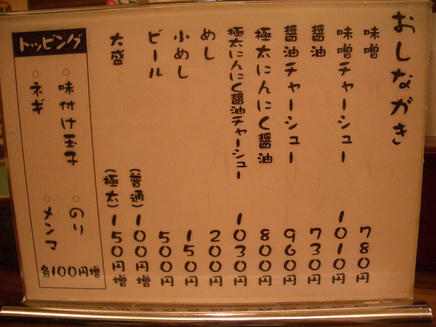 おしながき
味噌 780
味噌チャーシュー 1010
醤油 730
醤油チャーシュー 960
極太にんにく醤油 800
極太にんにく醤油チャーシュー 1030
めし 200
小めし 150
ビール 500
大盛 (普通) 100円増
(極太) 150円増
トッピング
○味付け玉子 ○のり
○ネギ ○メンマ
各100円増